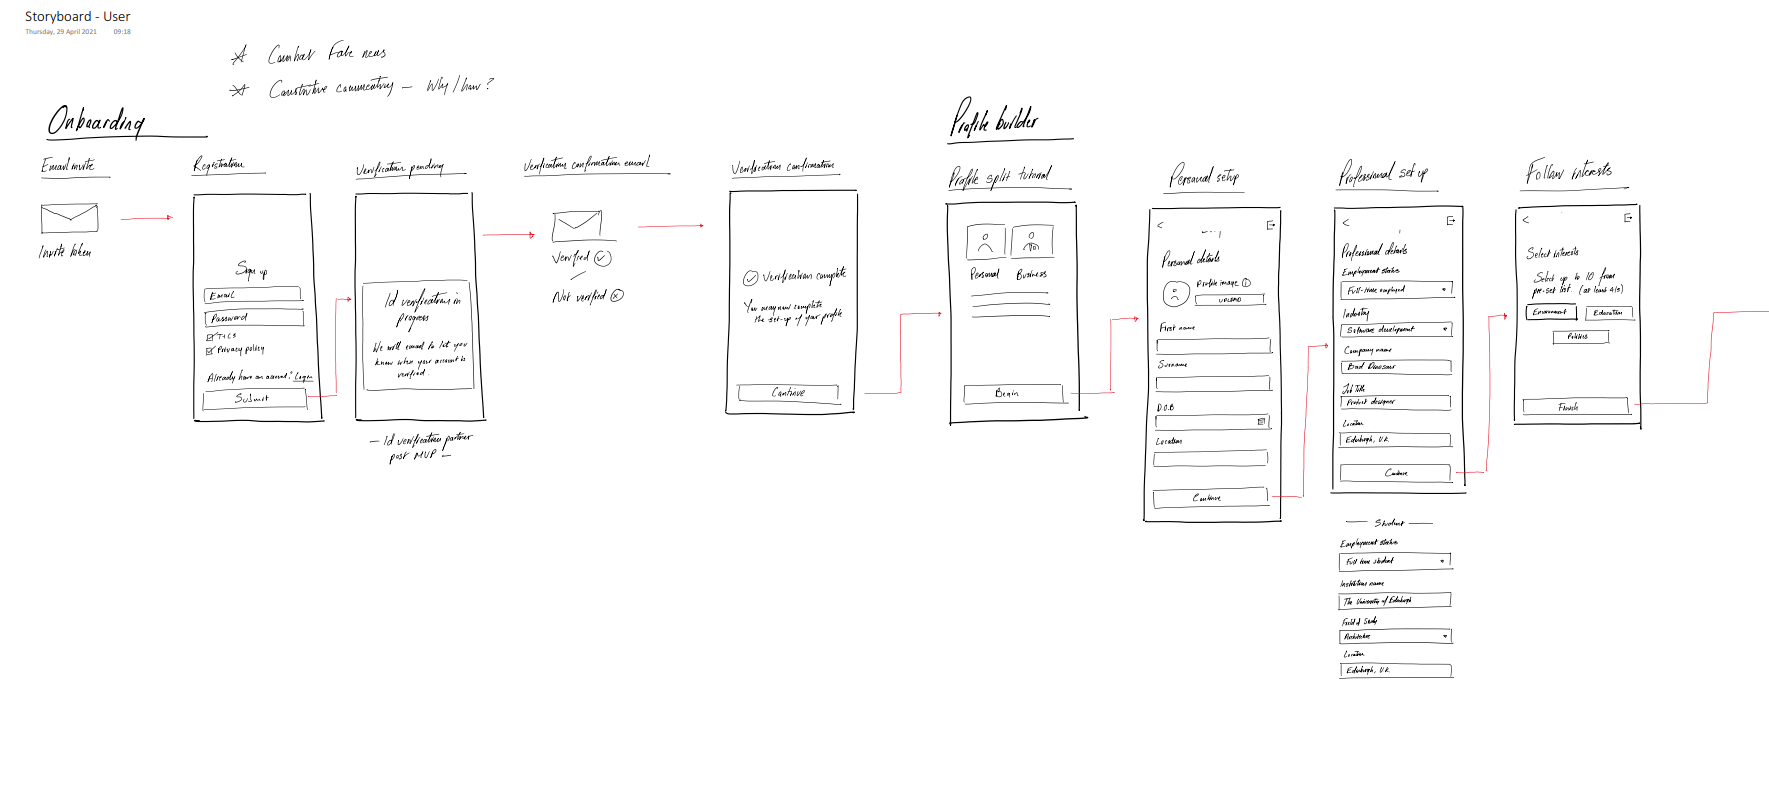 Storyboard - User
Thursday, 29 April 2021 09:18
Combat Fake news
Constructive commentary - Why/how?
Onboarding
Email invite
Invite token
Registration
Sign up
Email
Password
T+Cs
Privacy policy
Already have an account? Login
Submit
Verification pending
Id verification in
progress
We will email to let you
know when your account is
verified.
- Id verification partner
post MVP -
Verification confirmation email
Verified
Not verified
Verification confirmation
Verification complete
You may now complete
the set-up of your profile
Continue
Profile builder
Profile split tutorial
Personal Business
Begin
Personal setup
<
Personal details
Profile image
UPLOAD
First name
Surname
D.O.B
Location
Continue
Professional set up
<
Professional details
Employment status
Full-time employed
Industry
Software development
Company name
Bad Dinosaur
Job Title
Product designer
Location
Edinburgh, UK
Continue
Student
Employment status
Full time student
Institution name
The University of Edinburgh
Field of Study
Architecture
Location
Edinburgh, UK
Follow interests
<
Select interests
Select up to 10 from
pre-set list. (at least
Environment Education
Politics
Finish